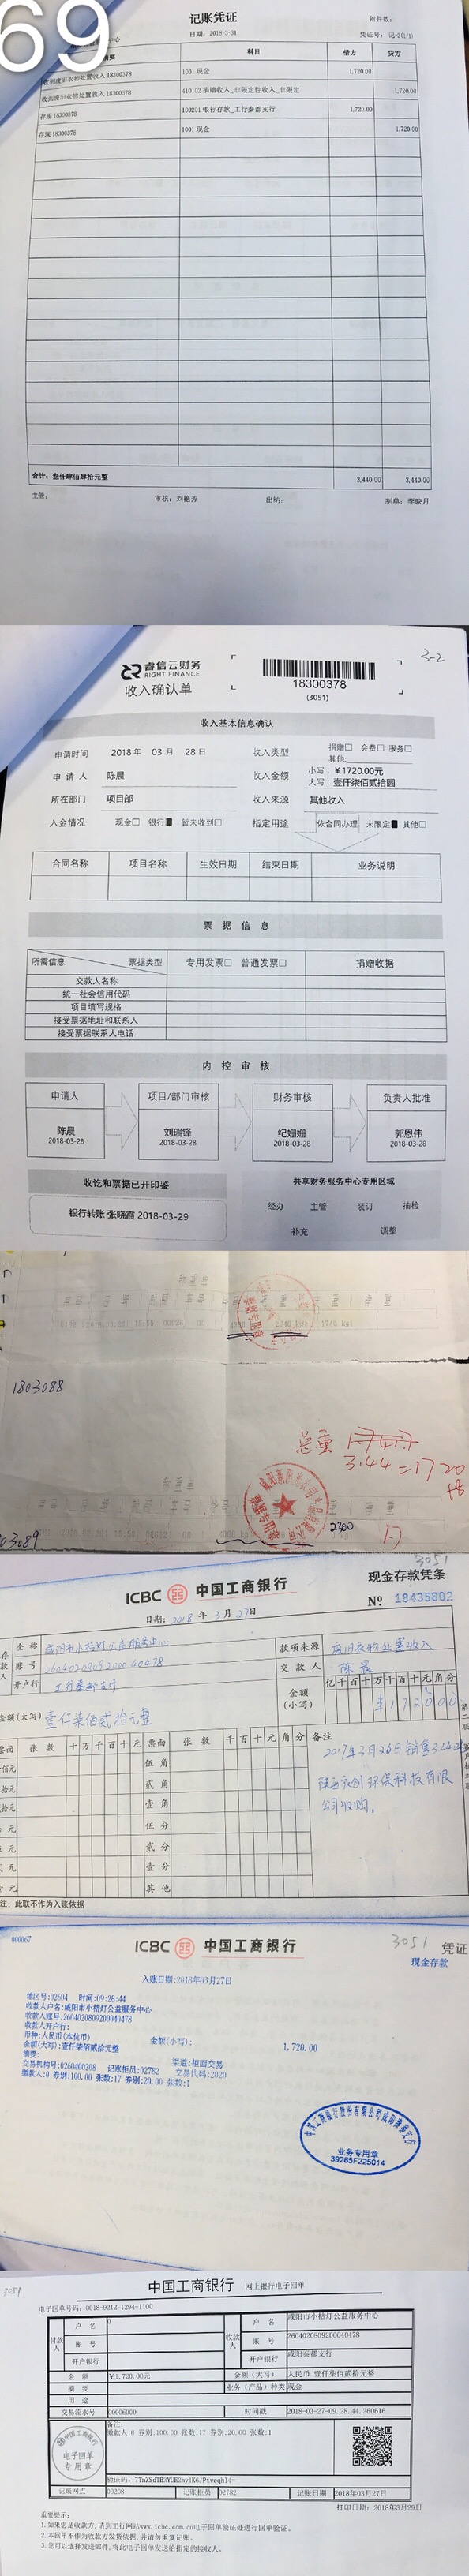 69
记账凭证
附件数:
中心
日期: 2018-3-31
凭证号: 记-2(1/1)
摘要 科目 借方 贷方
收到废旧衣物处置收入 18300378 1001 现金 1,720.00
收到废旧衣物处置收入 18300378 410102 捐赠收入_非限定性收入_非限定 1,720.00
存现 18300378 100201 银行存款_工行秦都支行 1,720.00
存现 18300378 1001 现金 1,720.00
合计: 叁仟肆佰肆拾元整 3,440.00 3,440.00
主管: 审核: 刘艳芳 出纳: 制单: 李映月
3-2
睿信云财务
RIGHT FINANCE
收入确认单
18300378
(3051)
收入基本信息确认
申请时间 2018 年 03 月 28 日 收入类型 捐赠□ 会费□ 服务□
其他:
申 请 人 陈晨 收入金额 小写:￥1720.00元
大写:壹仟柒佰贰拾圆
所在部门 项目部 收入来源 其他收入
入金情况 现金□ 银行■ 暂未收到□ 指定用途 依合同办理 未限定■ 其他□
合同名称 项目名称 生效日期 结束日期 业务说明
票 据 信 息
所需信息 票据类型 专用发票□ 普通发票□ 捐赠收据
交款人名称
统一社会信用代码
项目填写规格
接受票据地址和联系人
接受票据联系人电话
内 控 审 核
申请人 项目/部门审核 财务审核 负责人批准
陈晨 刘瑞锋 纪姗姗 郭恩伟
2018-03-28 2018-03-28 2018-03-28 2018-03-28
收讫和票据已开印鉴 共享财务服务中心专用区域
银行转账 张晓霞 2018-03-29
经办 主管 装订 抽检
补充 调整
1803088
总重
3.44 = 1720
03089
2300
17
3051
ICBC 中国工商银行
现金存款凭条
日期: 2018 年 3 月 27 日
№ 18435802
存款人
全 称 咸阳市小桔灯公益服务中心
账 号 2604020809200040478
开户行 工行秦都支行
款项来源 废旧衣物处置收入
交 款 人 陈晨
金额(大写) 壹仟柒佰贰拾元整
金额(小写) 亿 千 百 十 万 千 百 十 元 角 分
¥ 1 7 2 0 0 0
票面 张 数 十 万 千 百 十 元 票面 张 数 千 百 十 元 角 分 备注
伍 角
贰 角
壹 角
伍 分
贰 分
壹 分
其 他
2017年3月26日 销售3.44
环保科技有限
公司收购。
注: 此联不作为入账依据
000067
ICBC 中国工商银行
3051 凭证
现金存款
入账日期:2018年03月27日
地区号:02604 时间:09:28:44
收款人户名:咸阳市小桔灯公益服务中心
收款人账号:2604020809200040478
收款人开户行:
币种:人民币(本位币) 金额(小写): 1,720.00
金额(大写):壹仟柒佰贰拾元整
摘要: 渠道:柜面交易
交易机构号:0260400208 记账柜员:02782 交易代码:2020
缴款人:0 券别:100.00 张数:17 券别:20.00 张数:1
业务专用章
39265F225014
3051
中国工商银行 网上银行电子回单
电子回单号码: 0018-9212-1294-1100
付款人 户 名 0 收款人 户 名 咸阳市小桔灯公益服务中心
账 号 账 号 2604020809200040478
开户银行 开户银行 咸阳秦都支行
金 额 ￥1,720.00元 金额(大写) 人民币 壹仟柒佰贰拾元整
摘 要 业务(产品)种类 现金
用 途
交易流水号 00006000 时间戳 2018-03-27-09.28.44.260616
中国工商银行
电子回单
专用章
备注:
缴款人:0 券别:100.00 张数:17 券别:20.00 张数:1
记账网点 00208 记账柜员 02782 记账日期 2018年03月27日
打印日期: 2018年3月29日
重要提示:
1.如果您是收款方, 请到工行网站www.icbc.com.cn电子回单验证处进行回单验证。
2.本回单不作为收款方发货依据, 并请勿重复记账。
3.您可以选择发送邮件, 将此电子回单发送给指定的接收人。